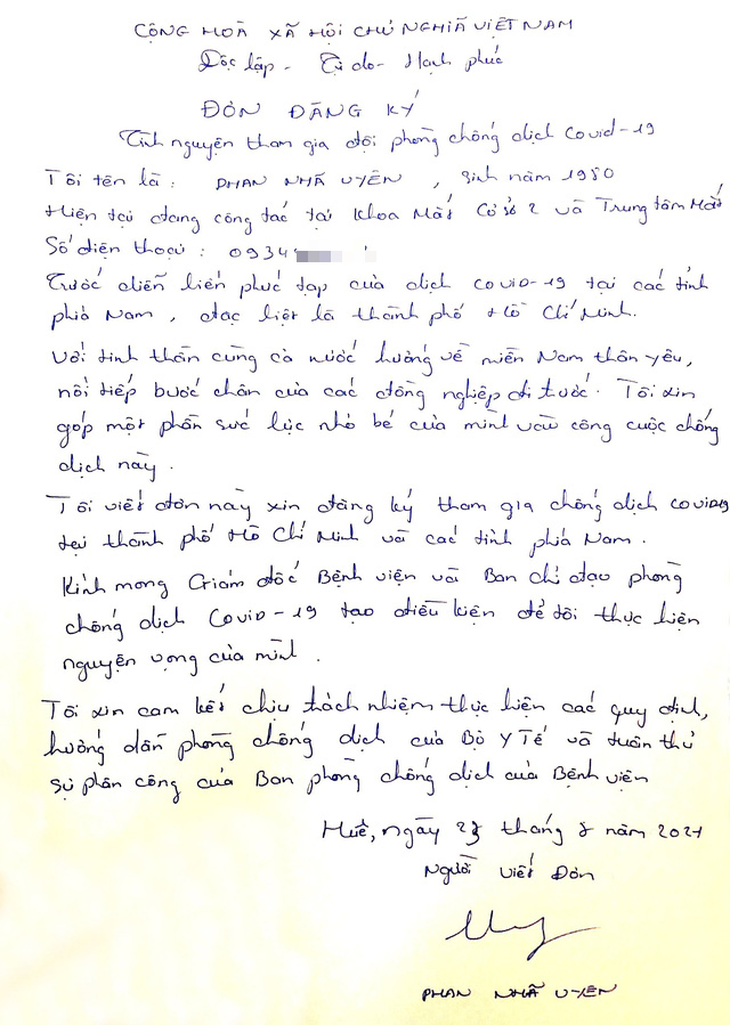 CỘNG HOÀ XÃ HỘI CHỦ NGHĨA VIỆT NAM
Độc lập - Tự do - Hạnh phúc
ĐƠN ĐĂNG KÝ
Tình nguyện tham gia đội phòng chống dịch Covid-19
Tôi tên là : PHAN NHÃ UYÊN , Sinh năm 1980
Hiện tại đang công tác tại Khoa Mắt Cơ sở 2 và Trung tâm Mắt
Số điện thoại : 0934
Trước diễn biến phức tạp của dịch Covid-19 tại các tỉnh
phía Nam , đặc biệt là thành phố Hồ Chí Minh.
Với tinh thần cùng cả nước hướng về miền Nam thân yêu,
nối tiếp bước chân của các đồng nghiệp đi trước. Tôi xin
góp một phần sức lực nhỏ bé của mình vào công cuộc chống
dịch này .
Tôi viết đơn này xin đăng ký tham gia chống dịch Covid19
tại thành phố Hồ Chí Minh và các tỉnh phía Nam .
Kính mong Giám đốc Bệnh viện và Ban chỉ đạo phòng
chống dịch Covid-19 tạo điều kiện để tôi thực hiện
nguyện vọng của mình .
Tôi xin cam kết chịu trách nhiệm thực hiện các quy định,
hướng dẫn phòng chống dịch của Bộ Y Tế và tuân thủ
sự phân công của Ban phòng chống dịch của Bệnh viện
Huế, ngày 23 tháng 8 năm 2021
Người viết Đơn
PHAN NHÃ UYÊN